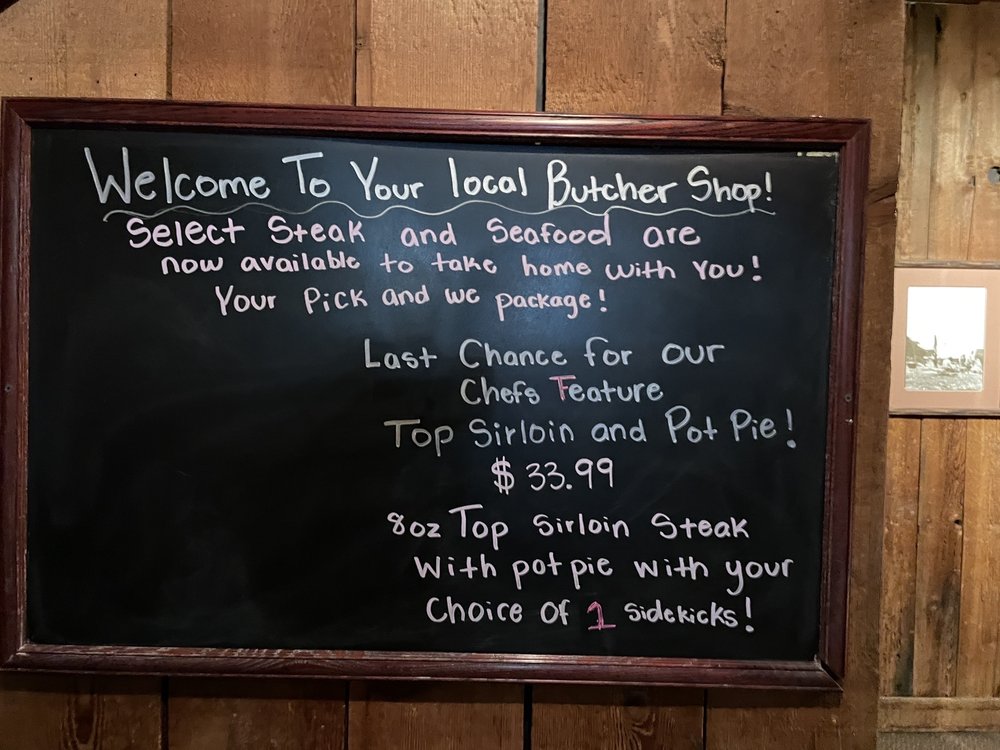 Welcome To Your local Butcher Shop!
Select Steak and Seafood are
now available to take home with You!
Your Pick and we package!
Last Chance for our
Chefs Feature
Top Sirloin and Pot Pie!
$33.99
8oz Top Sirloin Steak
With pot pie with your
Choice Of 1 Sidekicks!